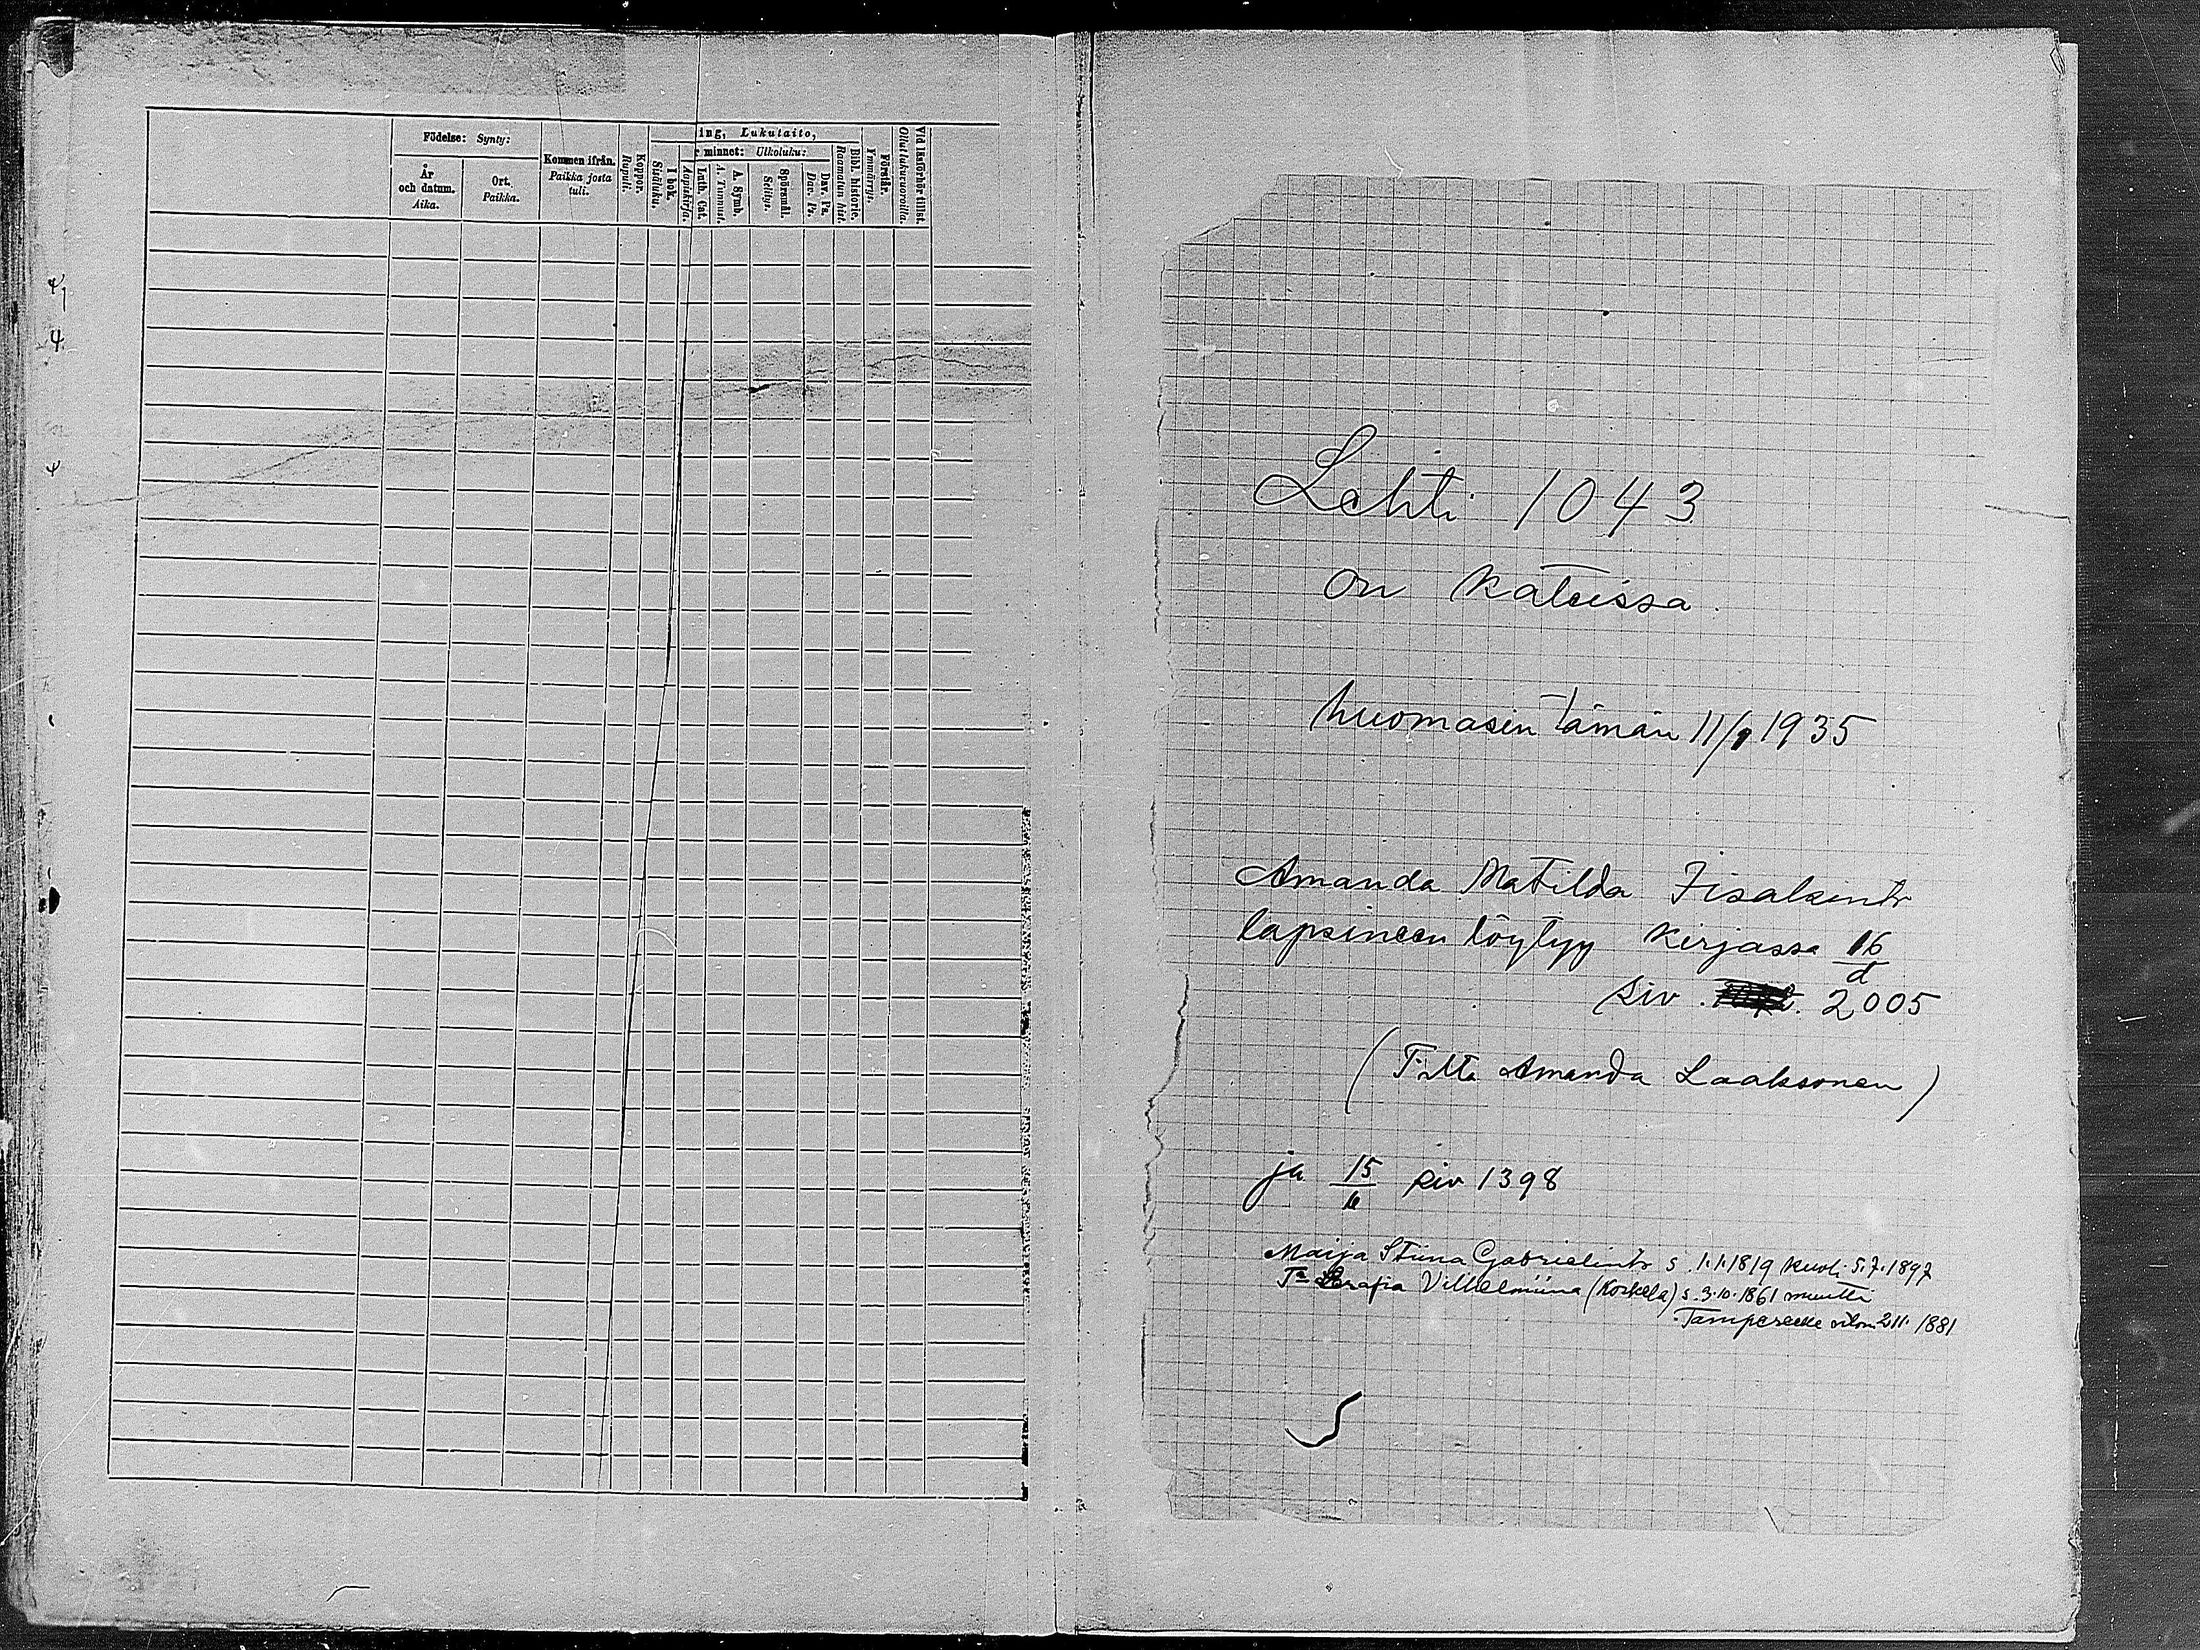 Födelse: Synty:
År och datum. Aika.
Ort. Paikka.
Kommen ifrån. Paikka josta tuli.
Koppor. Rupuli.
ing, Lukutaito,
I bok. Sisäluku.
r minnet: Ulkoluku:
Aapiskirja.
Luth. Cat.
A. Tunnust.
A. Symb.
Spörsmål. Selitys.
Dav. Ps. Dav. Ps.
Bibl. historie. Raamatun hist.
Förstår. Ymmärrys.
Vid läsförhör tillst. Ollut lukuvuoroilla.
Lehti 1043
on kateissa.
huomasin tämän 11/9 1935
Amanda Matilda Iisakintr
lapsineen löytyy kirjassa 16/d
siv. 2005
(Tilta Amanda Laaksonen)
ja 15/b siv 1398
Maija Stiina Gabrielintr s. 1.1.1819 kuoli 5.7.1897
Tr Serafia Vilhelmiina (Koskela) s. 3.10.1861 muutti
Tampereelle 2.11.1881